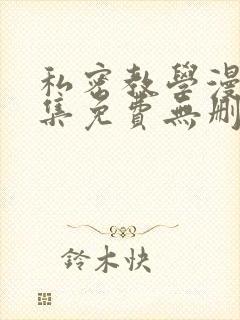 私密教學漫
集免費無刪
鈴木快